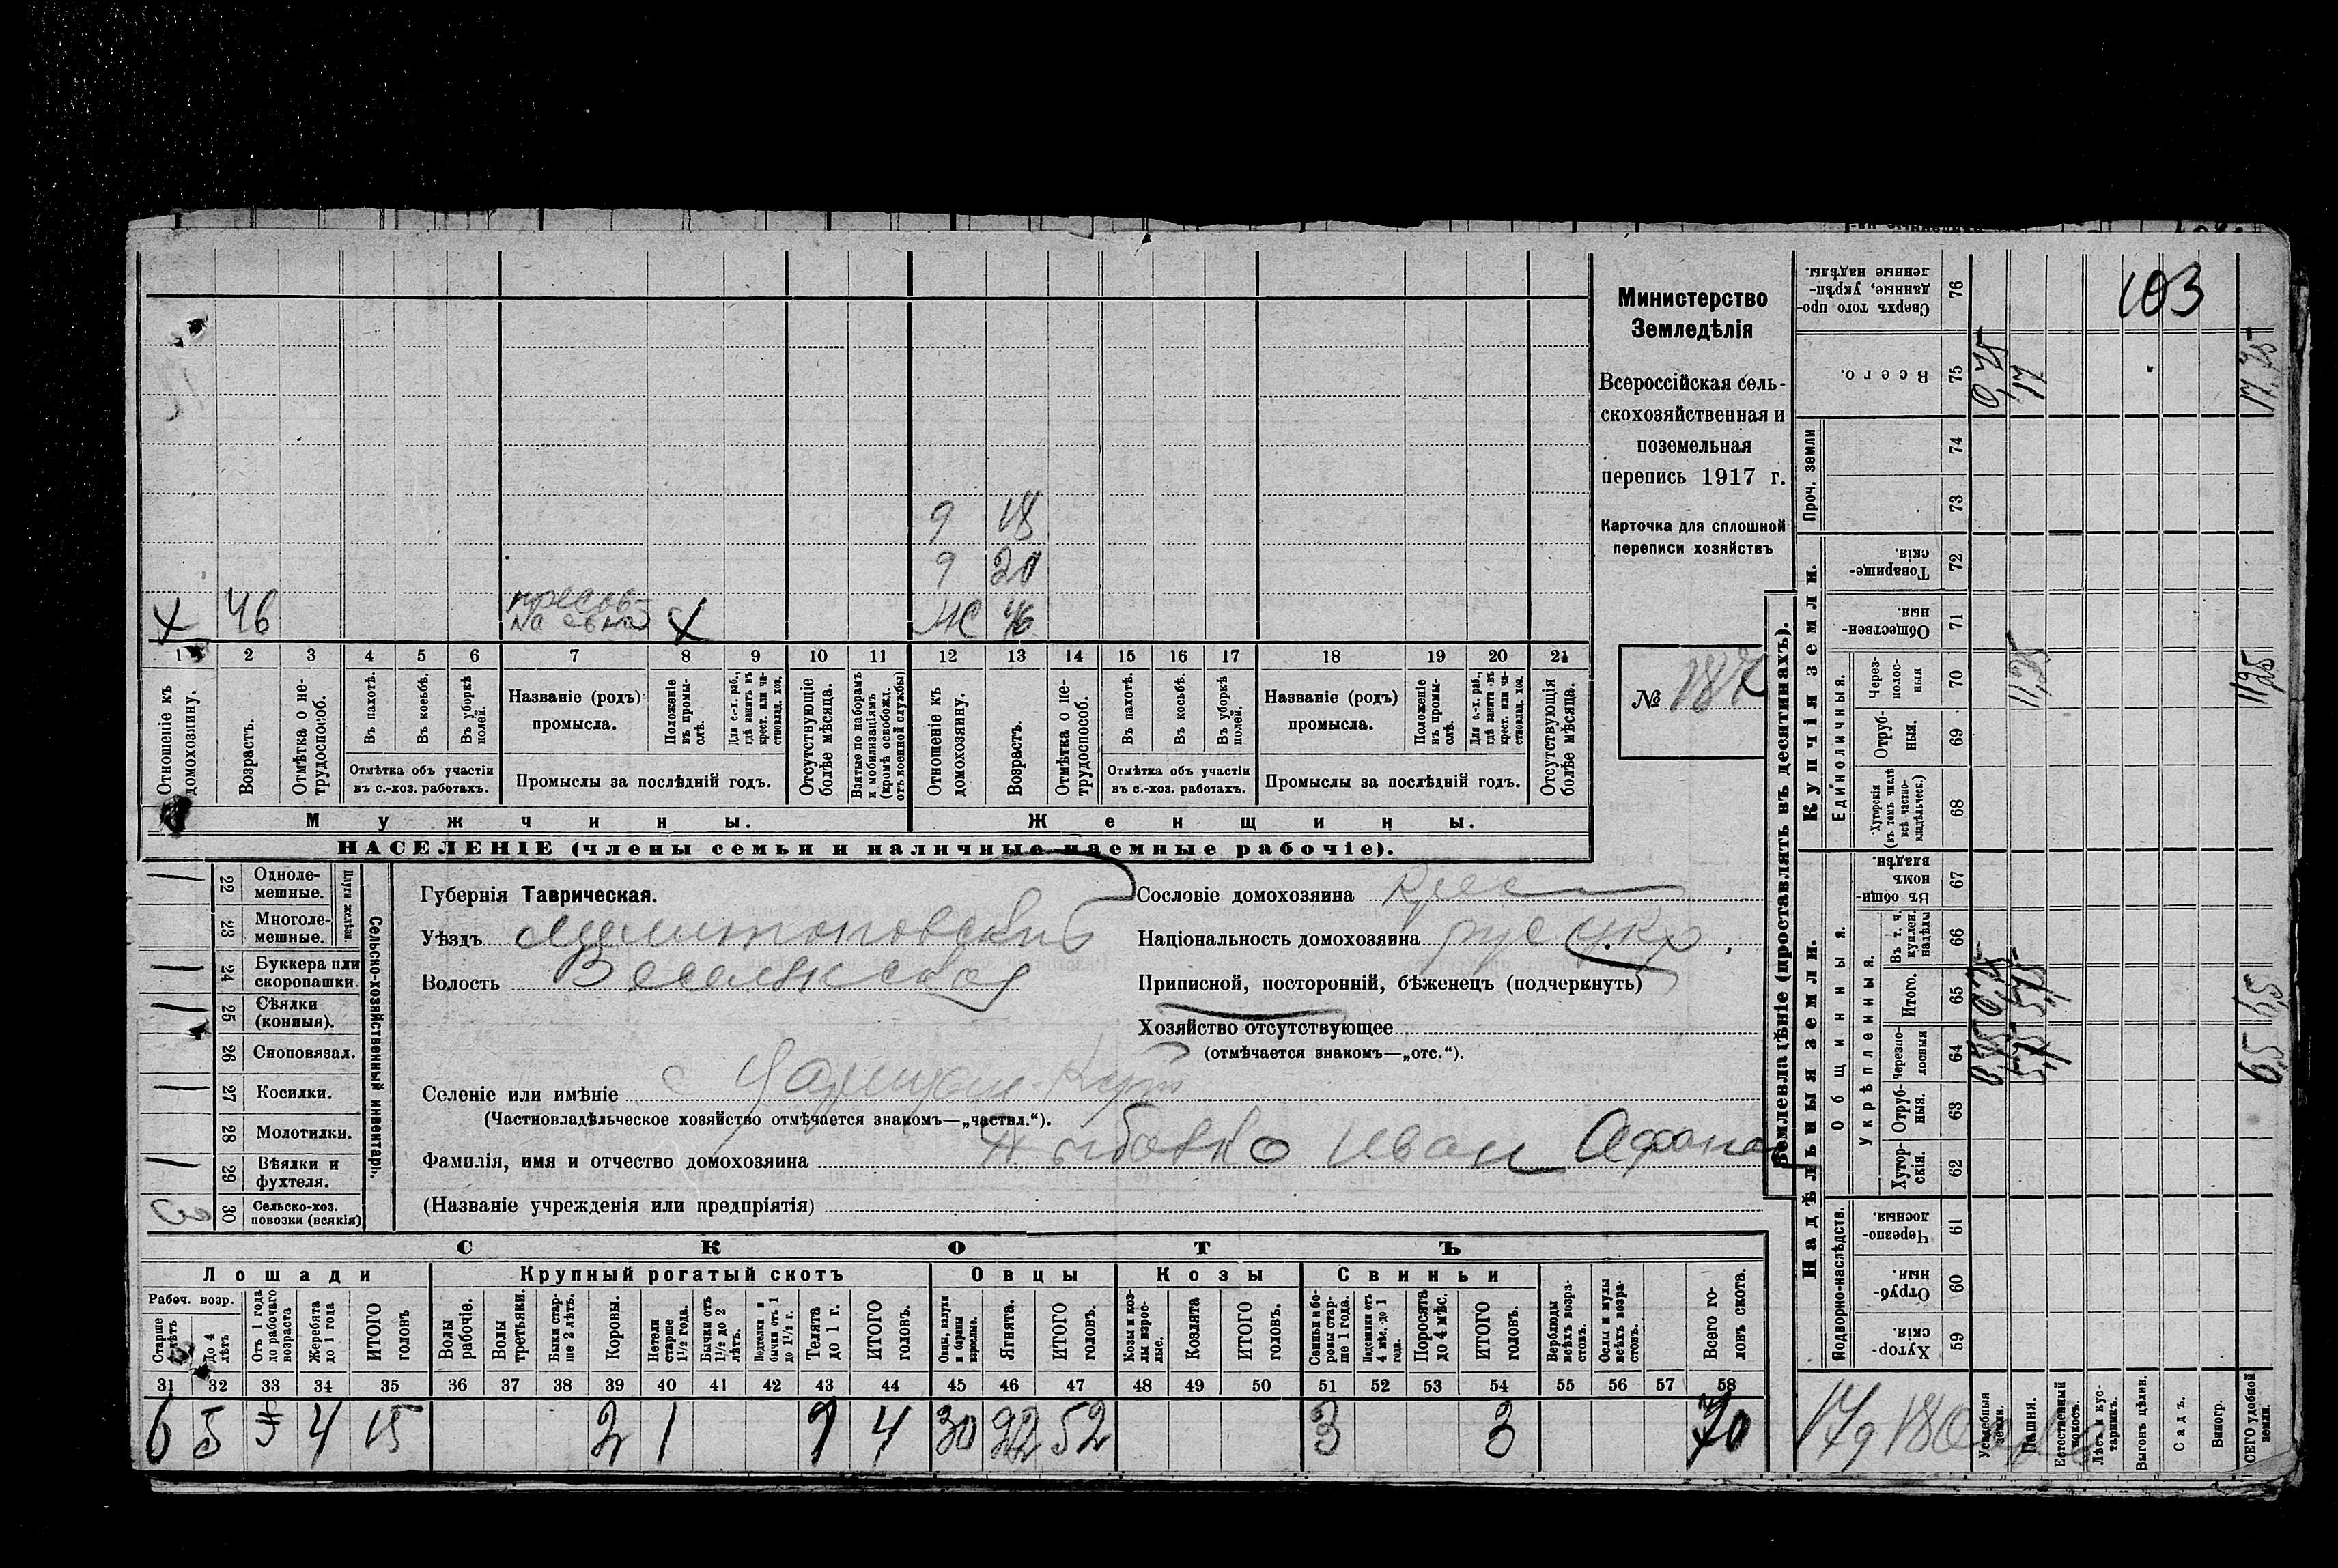 103
Министерство
Земледѣлія
Всероссійская сель-
скохозяйственная и
поземельная
перепись 1917 г.
Карточка для сплошной
переписи хозяйствъ
№
9 18
9 20
х 46 х жс 46
1 2 3 4 5 6 7 8 9 10 11 12 13 14 15 16 17 18 19 20 21
Отношеніе къ домохозяину.
Возрастъ.
Отмѣтка о не-трудоспособ.
Въ пахотѣ.
Въ косьбѣ.
Въ уборкѣ полей.
Отмѣтка объ участіи
въ с.-хоз. работахъ.
Названіе (родъ)
промысла.
Положеніе въ промы-слѣ.
Для с.-х. раб., гдѣ занятъ въ крест. или ча-стновлад. хоз.
Промыслы за послѣдній годъ.
Отсутствующіе болѣе мѣсяца.
Взятые по наборамъ и мобилизаціямъ (кромѣ освобожд. отъ военной службы)
Отношеніе къ домохозяину.
Возрастъ.
Отмѣтка о не-трудоспособ.
Въ пахотѣ.
Въ косьбѣ.
Въ уборкѣ полей.
Отмѣтка объ участіи
въ с.-хоз. работахъ.
Названіе (родъ)
промысла.
Положеніе въ промы-слѣ.
Для с.-х. раб., гдѣ занята въ крест. или ча-стновлад. хоз.
Промыслы за послѣдній годъ.
Отсутствующія болѣе мѣсяца.
Мужчины.
Женщины.
НАСЕЛЕНІЕ (члены семьи и наличные наемные рабочіе).
Сельско-хозяйственный инвентарь.
Плуги желѣзн.
22 Одноле-мешные.
23 Многоле-мешные.
24 Буккера или скоропашки
25 Сѣялки (конныя).
26 Сноповязал.
27 Косилки.
28 Молотилки.
29 Вѣялки и фухтеля.
30 Сельско-хоз. повозки (всякія)
Губернія Таврическая.
Уѣздъ Мелитопольскій
Волость Веселовская
Селеніе или имѣніе с Царицын-Кут
(Частновладѣльческое хозяйство отмѣчается знакомъ—„частвл.“).
Фамилія, имя и отчество домохозяина Иван Афана
(Названіе учрежденія или предпріятія)
Сословіе домохозяина Крес
Національность домохозяина
Приписной, посторонній, бѣженецъ (подчеркнуть)
Хозяйство отсутствующее
(отмѣчается знакомъ—„отс.“).
СКОТЪ
Лошади
Крупный рогатый скотъ
Овцы
Козы
Свиньи
Рабоч. возр.
Старше 4 лѣтъ
До 4 лѣтъ
Отъ 1 года до рабочаго возраста
Жеребята до 1 года
ИТОГО головъ
Волы рабочіе.
Волы третьяки.
Быки стар-ше 2 лѣтъ.
Коровы.
Нетели старше 1½ года.
Бычки отъ 1½ до 2 лѣтъ.
Подтелки и бычки отъ 1 до 1½ г.
Телята до 1 г.
ИТОГО головъ.
Овцы, валухи и бараны взрослые.
Ягнята.
ИТОГО головъ.
Козы и коз-лы взрос-лые.
Козлята
ИТОГО головъ.
Свиньи и бо-ровы стар-ше 1 года.
Подсвинки отъ 4 мѣс. до 1 года.
Поросята до 4 мѣс.
ИТОГО головъ.
Верблюды всѣхъ возра-стовъ.
Ослы и мулы всѣхъ возра-стовъ.
Всего го-ловъ скота.
31 32 33 34 35 36 37 38 39 40 41 42 43 44 45 46 47 48 49 50 51 52 53 54 55 56 57 58
6 5 4 15 2 1 1 4 30 22 52 3 3
Землевладѣніе (проставлять въ десятинахъ).
Надѣльныя земли.
Купчія земли.
Подворно-наслѣдств.
Общинныя.
Укрѣпленныя.
Единоличныя.
Проч. земли
59 Хутор-скія.
60 Отруб-ныя.
61 Черезпо-лосныя.
62 Хутор-скія.
63 Отруб-ныя.
64 Черезпо-лосныя
65 Итого.
66 Въ т. ч. куплен. надѣлы
67 Въ общин-номъ владѣн.
68 Хуторскія (въ томъ числѣ всѣ частно-владѣльческ.)
69 Отруб-ныя.
70 Через-полос-ныя
71 Обществен-ныя.
72 Товарище-скія.
73
74
75 Всего.
76 Сверхъ того про-данные, укрѣп-ленные надѣлы.
Усадебныя земли. 0,75 0,75 0,75
Пашня. 5,75 5,75 11,25 17
Естественный сѣнокосъ.
Лѣсъ и кус-тарникъ.
Выгонъ цѣлин.
Садъ.
Виногр.
ВСЕГО удобной земли. 6,5 6,5 11,25 17,75